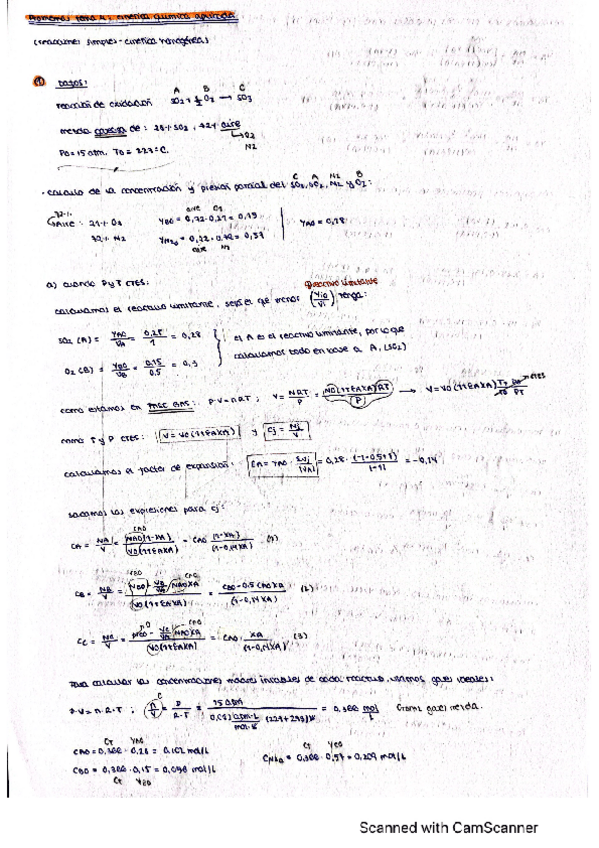 Problemas tema 4: cinética química aplicada
(reacciones simples - cinética homogénea)
① DATOS:
A B C
reacción de oxidación SO2 + ½ O2 → SO3
mezcla gaseosa de: 28% SO2, 72% aire
O2
N2
P0 = 15 atm. T0 = 227ºC.
C A N2 B
- calculo de la concentración y presión parcial del SO3, SO2, N2 y O2:
72%
Aire: 21% O2
aire O2
yB0 = 0,72·0,21 = 0,15
yA0 = 0,28
72% N2
aire N2
a) cuando P y T CTES:
① reactivo limitante
calculamos el reactivo limitante, será el que menor (yi0/νi) tenga:
SO2 (A) = yA0/νA = 0,28/1 = 0,28
O2 (B) = yB0/νB = 0,15/0,5 = 0,3
el A es el reactivo limitante, por lo que
calculamos todo en base a A, (SO2)
como estamos en FASE GAS: P·V = nRT ; V = NRT/P = N0(1+εAXA)RT/P → V = V0(1+εAXA) T/T0 P0/P CTES
como T y P CTES: V = V0(1+εAXA) y Cj = Nj/V
calculamos el factor de expansión: εA = yA0 · Σνj/|νA| = 0,28 · (-1-0,5+1)/|-1| = -0,14
sacamos las expresiones para Cj:
CA0
CA = NA/V = NA0(1-XA)/V0(1+εAXA) = CA0 (1-XA)/(1-0,14XA) (1)
CB = NB/V = = CB0-0,5CA0XA/(1-0,14XA) (2)
= CA0 · XA/(1-0,14XA) (3)
Para calcular las concentraciones molares iniciales de cada reactivo, usamos gases ideales:
P·V = n·R·T ; (n/V) = P/R·T = 15 atm/0,082 atm·L/mol·K (227+273)K = 0,366 mol/L
CT yA0
CA0 = 0,366·0,28 = 0,102 mol/L
CT yB0
CN20 = 0,366·0,57 = 0,209 mol/L
CT yB0
Scanned with CamScanner